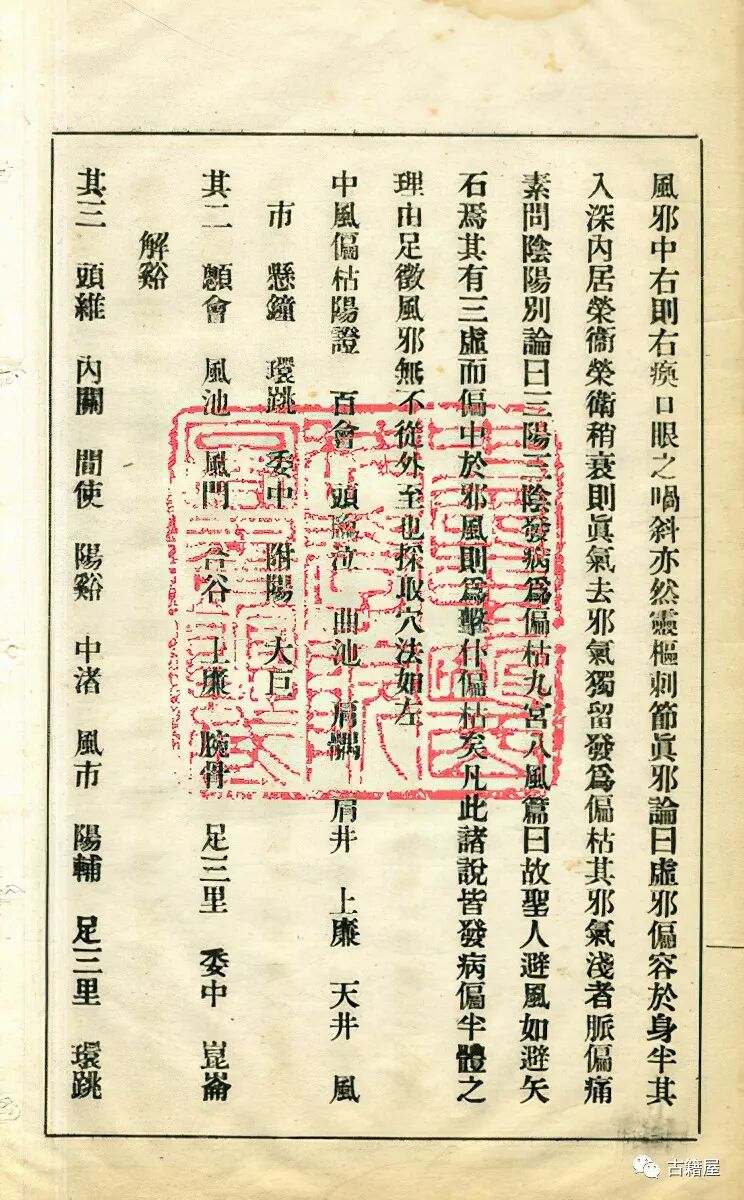 風邪中右則右瘓口眼之喎斜亦然靈樞刺節眞邪論曰虛邪偏容於身半其
入深內居榮衞榮衛稍衰則眞氣去邪氣獨留發爲偏枯其邪氣淺者脈偏痛
素問陰陽別論曰三陽三陰發病爲偏枯九宮八風篇曰故聖人避風如避矢
石焉其有三虛而偏中於邪風則爲擊仆偏枯矣凡此諸說皆發病偏半體之
理由足徵風邪無不從外至也採取穴法如左
中風偏枯陽證 百會 頭臨泣 曲池 肩髃 肩井 上廉 天井 風
市 懸鐘 環跳 委中 附陽 大巨
其二 顖會 風池 風門 合谷 上廉 腕骨 足三里 委中 崑崙
解谿
其三 頭維 內關 間使 陽谿 中渚 風市 陽輔 足三里 環跳
古籍屋